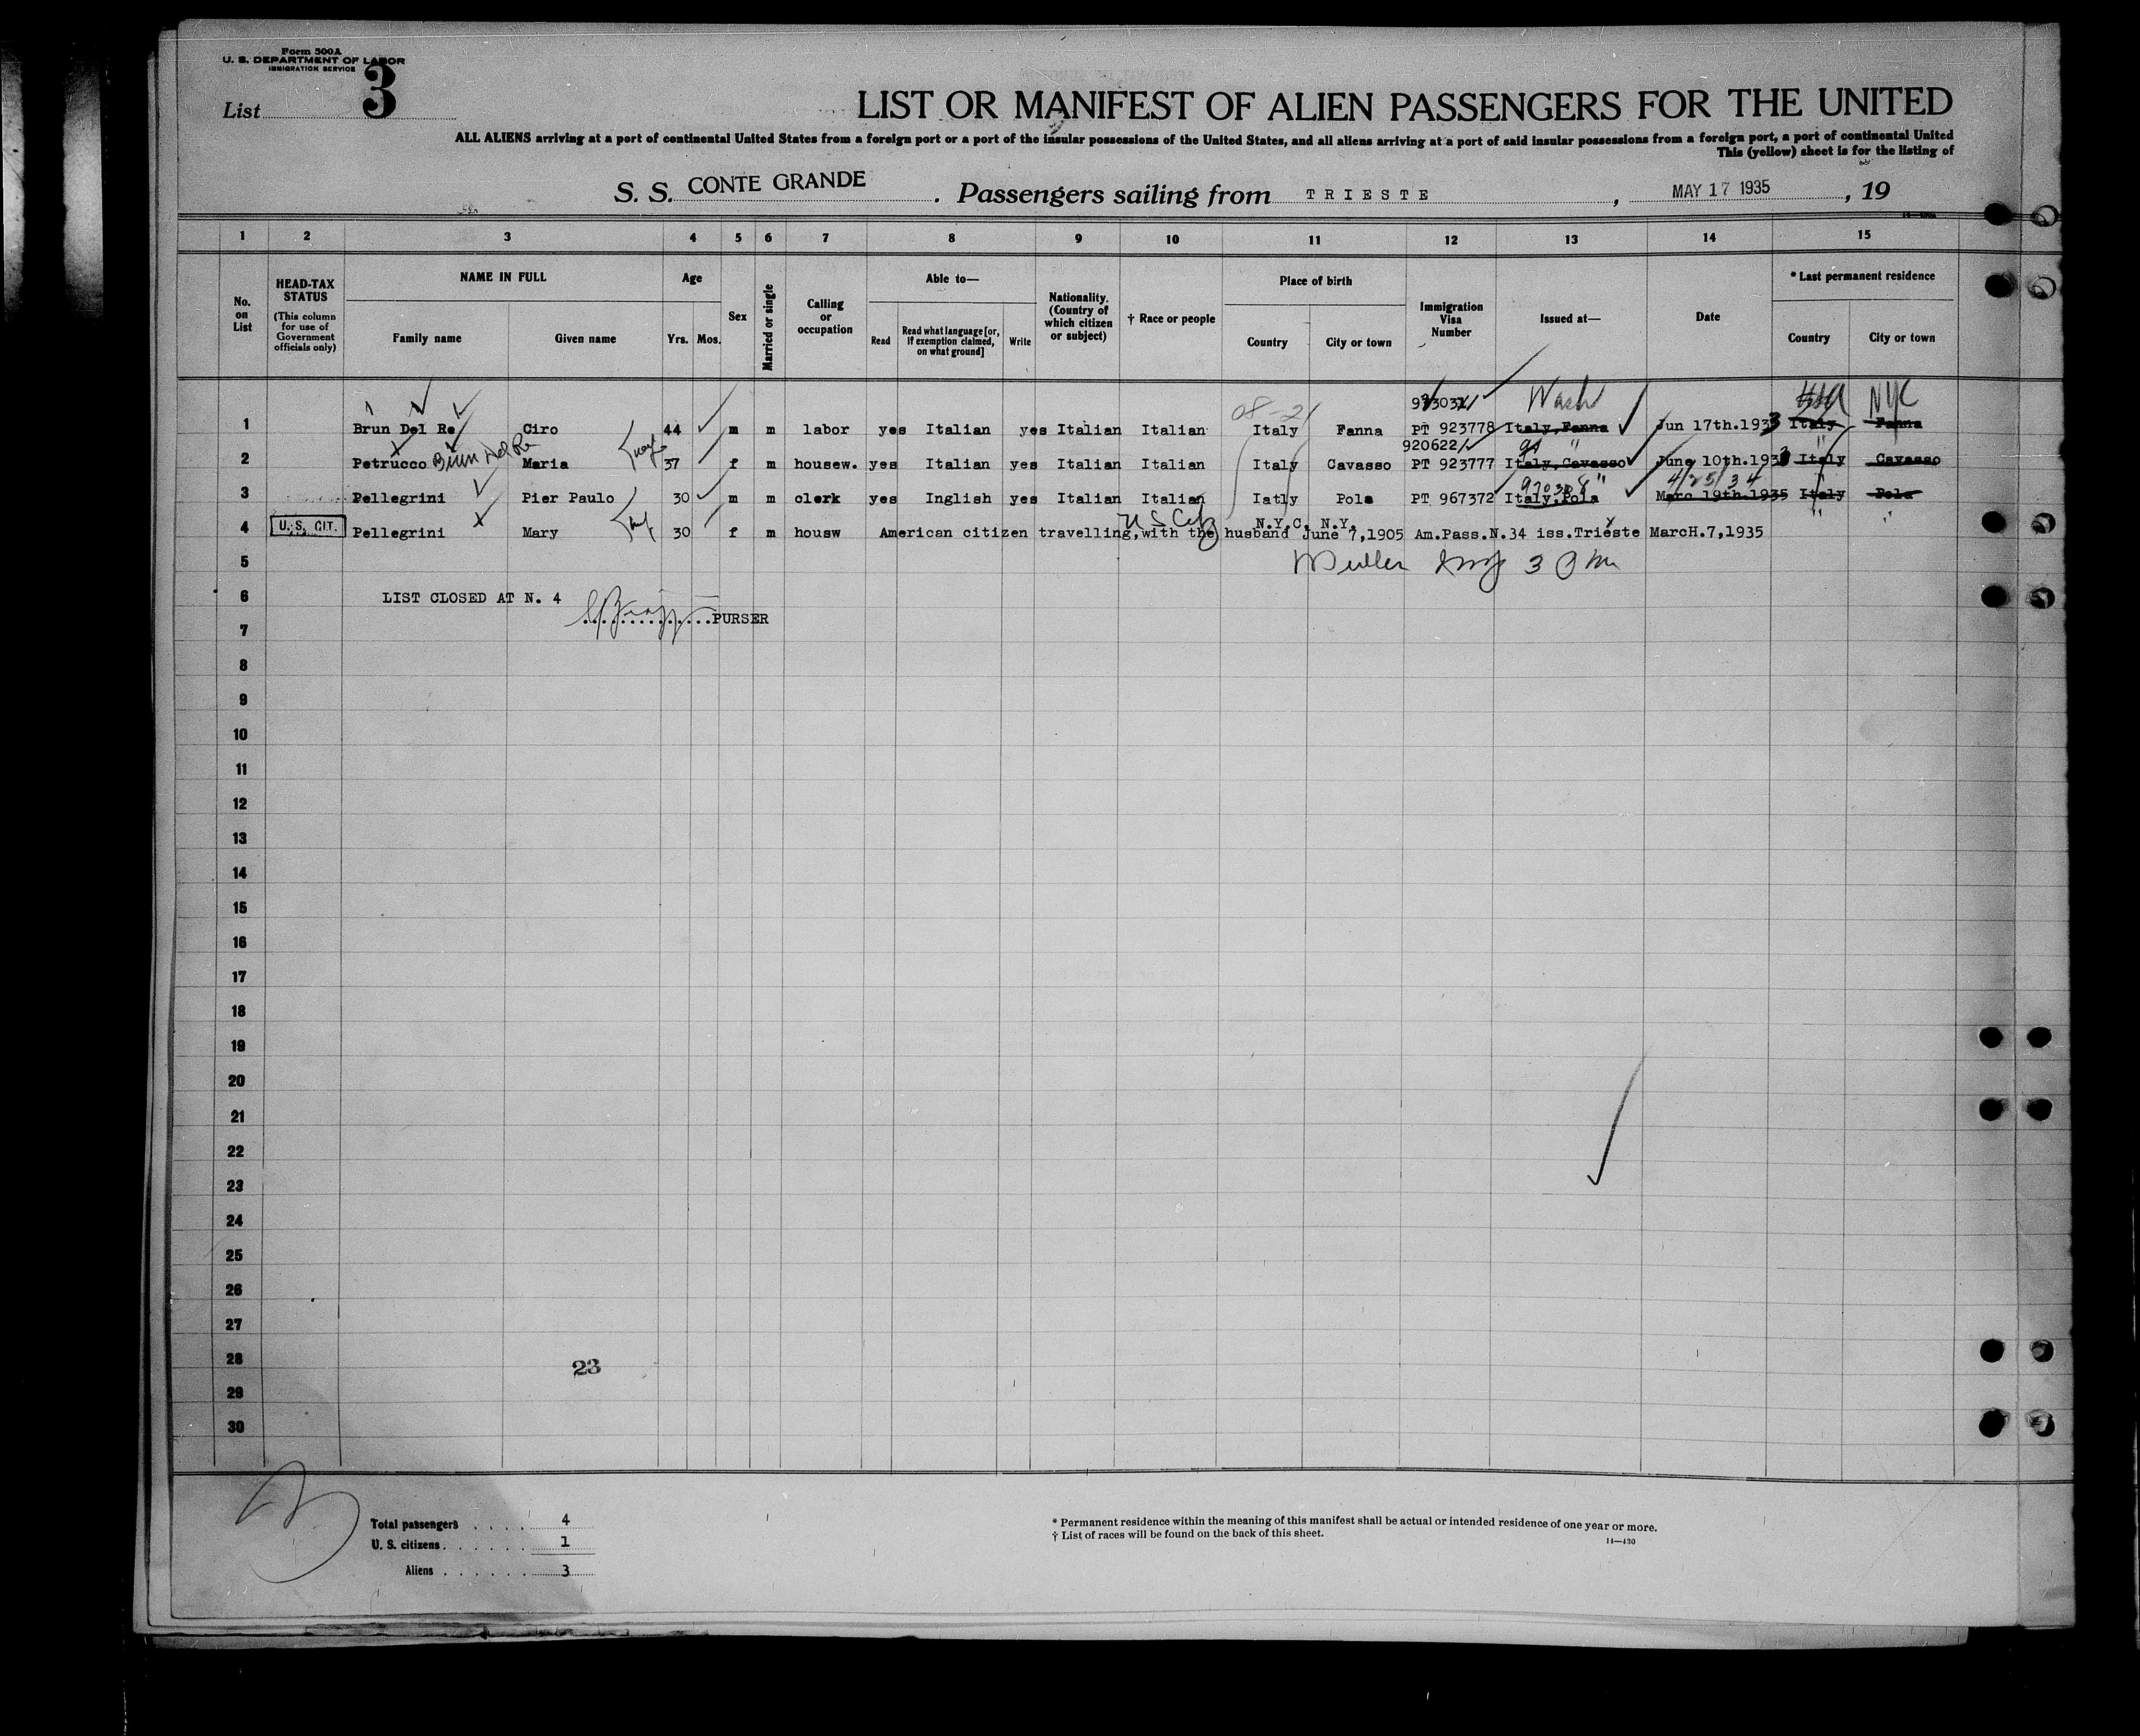 Form 500A
U. S. DEPARTMENT OF LABOR
IMMIGRATION SERVICE
List 3
LIST OR MANIFEST OF ALIEN PASSENGERS FOR THE UNITED
ALL ALIENS arriving at a port of continental United States from a foreign port or a port of the insular possessions of the United States, and all aliens arriving at a port of said insular possessions from a foreign port, a port of continental United
This (yellow) sheet is for the listing of
S. S. CONTE GRANDE. Passengers sailing from TRIESTE, MAY 17 1935, 19
1 2 3 4 5 6 7 8 9 10 11 12 13 14 15
No. on List
HEAD-TAX STATUS
(This column for use of Government officials only)
NAME IN FULL
Family name
Given name
Age
Yrs. Mos.
Sex
Married or single
Calling or occupation
Able to—
Read
Read what language [or, if exemption claimed, on what ground]
Write
Nationality. (Country of which citizen or subject)
† Race or people
Place of birth
Country
City or town
Immigration Visa Number
Issued at—
Date
* Last permanent residence
Country
City or town
Wash NYC
1 Brun Del Re Ciro 44 m m labor yes Italian yes Italian Italian Italy Fanna PT 923778 Italy,Fanna Jun 17th.1933 Italy Fanna
920622
2 Petrucco Brun Del Re Maria 37 f m housew. yes Italian yes Italian Italian Italy Cavasso PT 923777 Italy,Cavasso June 10th.1933 Italy Cavasso
4/25/34
3 Pellegrini Pier Paulo 30 m m clerk yes Inglish yes Italian Italian Iatly Pola PT 967372 Italy,Pola Marc 19th.1935 Italy Pola
U.S. CIT. US Cit N.Y.C. N.Y.
4 Pellegrini Mary 30 f m housw American citizen travelling,with the husband June 7,1905 Am.Pass.N.34 iss.Trieste MarcH.7,1935
5
6 LIST CLOSED AT N. 4
7 PURSER
8
9
10
11
12
13
14
15
16
17
18
19
20
21
22
23
24
25
26
27
28 23
29
30
Total passengers . . . . 4
U. S. citizens . . . . . . 1
Aliens . . . . . . 3
* Permanent residence within the meaning of this manifest shall be actual or intended residence of one year or more.
† List of races will be found on the back of this sheet.
14—430